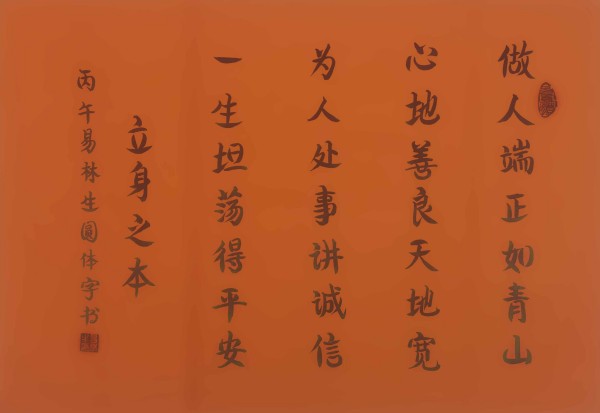 做人端正如青山
心地善良天地宽
为人处事讲诚信
一生坦荡得平安
立身之本
丙午易林生圆体字书